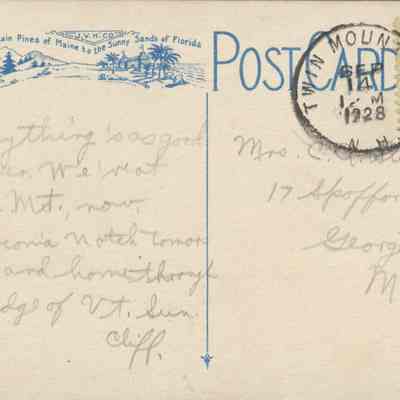 J.V.H. CO.
ain Pines of Maine to the Sunny Sands of Florida
POST CARD
TWIN MOUN
SEP
14
M
1928
N.H.
ything is as good
We're at
Mt. now.
conia Notch tomor
and home through
dge of Vt. Sun.
Cliff.
Mrs. C.
17 Spoffor
Georg
M